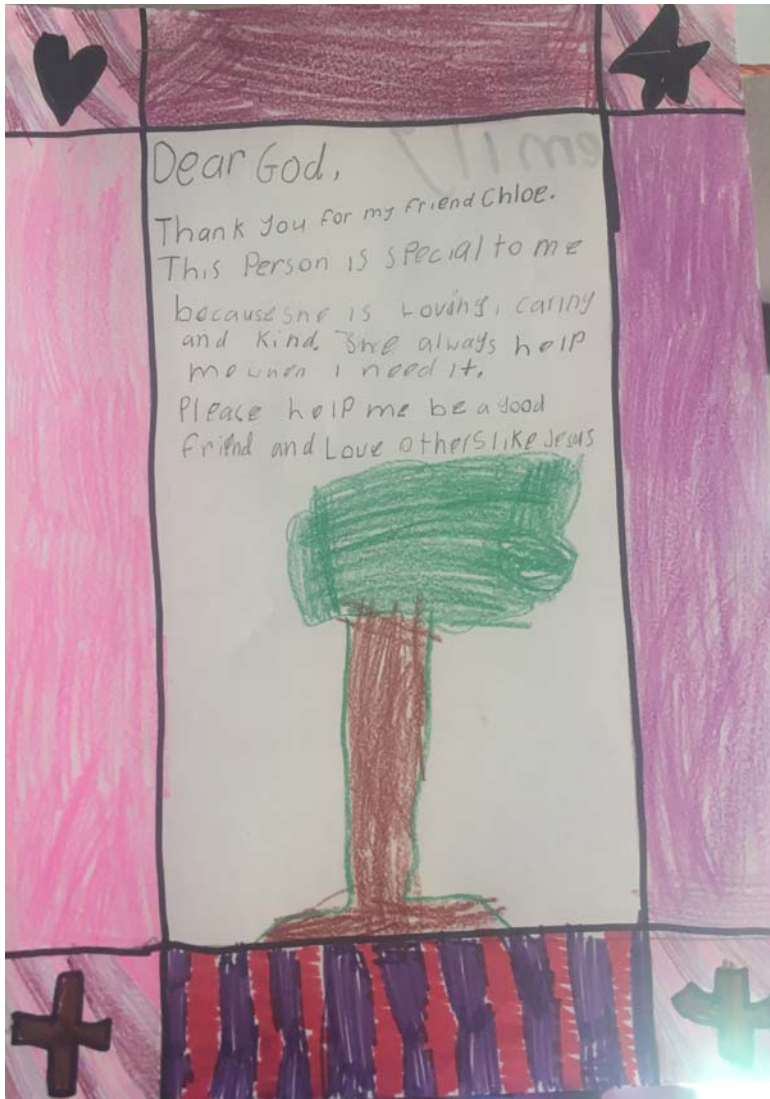 Dear God,
Thank you for my friend Chloe.
This Person is special to me
because she is Loving, caring
and kind. She always help
me when i need it.
Please help me be a good
friend and Love others like Jesus
emily